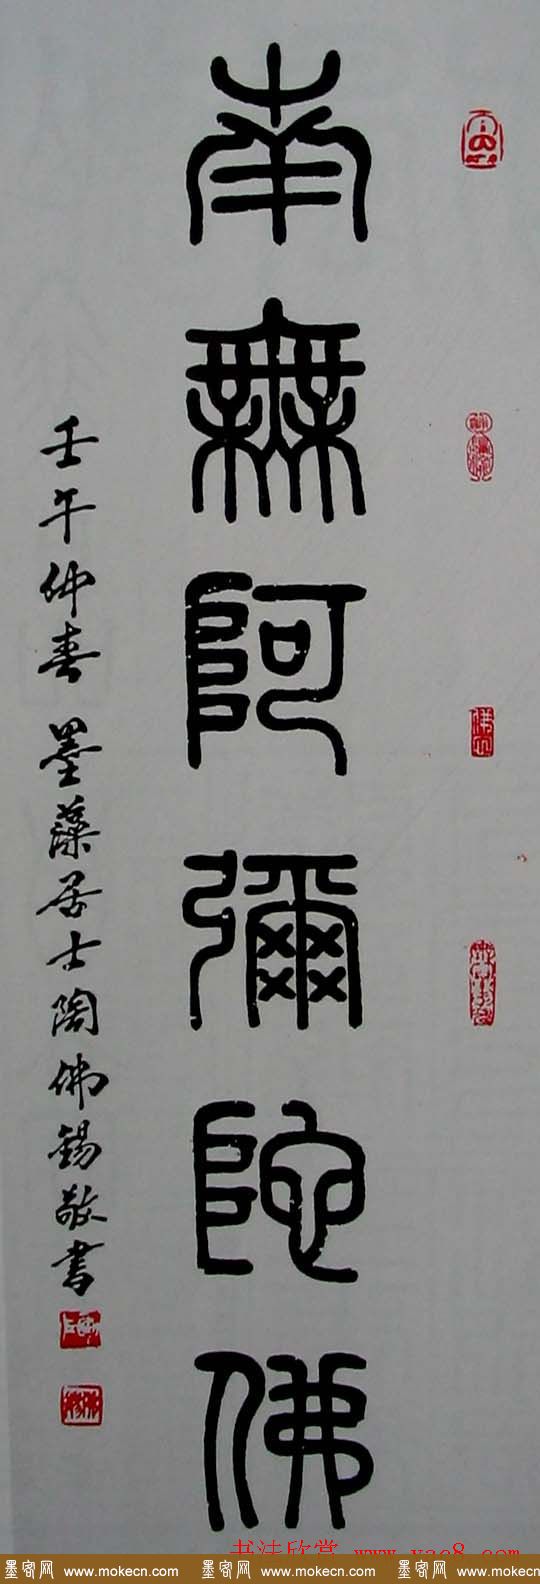 南無阿彌陀佛
壬午仲春 墨藻居士陶佛錫敬書
书法欣赏 www.yac8.com
墨客网 www.mokecn.com 墨客网 www.mokecn.com 墨客网 www.mokecn.com